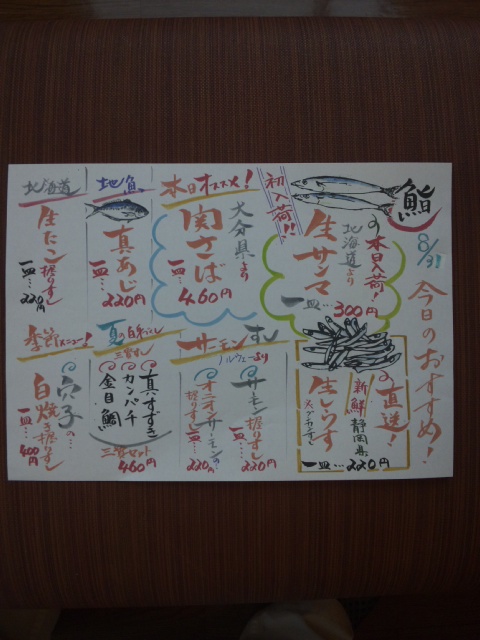 鮨
8/31
今日のおすすめ!
初入荷!!
本日入荷!
北海道より
生サンマ
一皿…300円
本日オススメ!
大分県より
関さば
一皿…460円
地魚
真あじ
一皿…220円
北海道
生たこ握りずし
一皿…220円
の直送!
新鮮静岡県
生しらす
一皿…220円
サーモンずし
ノルウェーより
サーモン握りずし
一皿…220円
オニオンサーモンの
握りずし一皿…220円
夏の白身づくし
三貫ずし
真すずき
カンパチ
金目鯛
三貫セット
460円
季節メニュー!
穴子の…
白焼き握りずし
一皿…400円